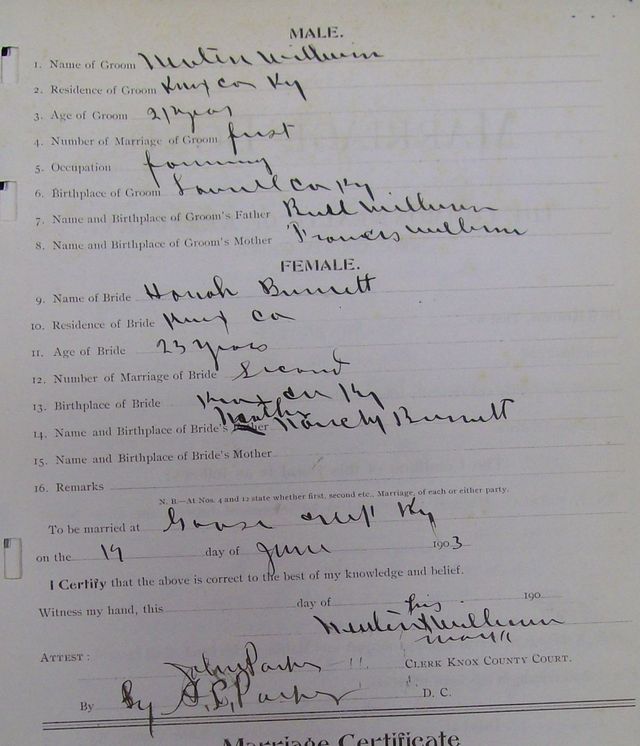 MALE.
1. Name of Groom Neuten Wilburn
2. Residence of Groom Knox Co Ky
3. Age of Groom 21 years
4. Number of Marriage of Groom first
5. Occupation farming
6. Birthplace of Groom Laurell Co Ky
7. Name and Birthplace of Groom's Father Wilburn
8. Name and Birthplace of Groom's Mother Francis Wilburn
FEMALE.
9. Name of Bride Honah Burnett
10. Residence of Bride Knox Co
11. Age of Bride 23 years
12. Number of Marriage of Bride Second
13. Birthplace of Bride Knox Co Ky
14. Name and Birthplace of Bride's Burnett
15. Name and Birthplace of Bride's Mother
16. Remarks
N. B.—At Nos. 4 and 12 state whether first, second etc., Marriage, of each or either party.
To be married at Goose Ky
on the 19 day of June 1903
I Certify that the above is correct to the best of my knowledge and belief.
Witness my hand, this day of 190
his
Neuten X Wilburn
mark
ATTEST: John Parker CLERK KNOX COUNTY COURT.
By By Parker D. C.
Marriage Certificate